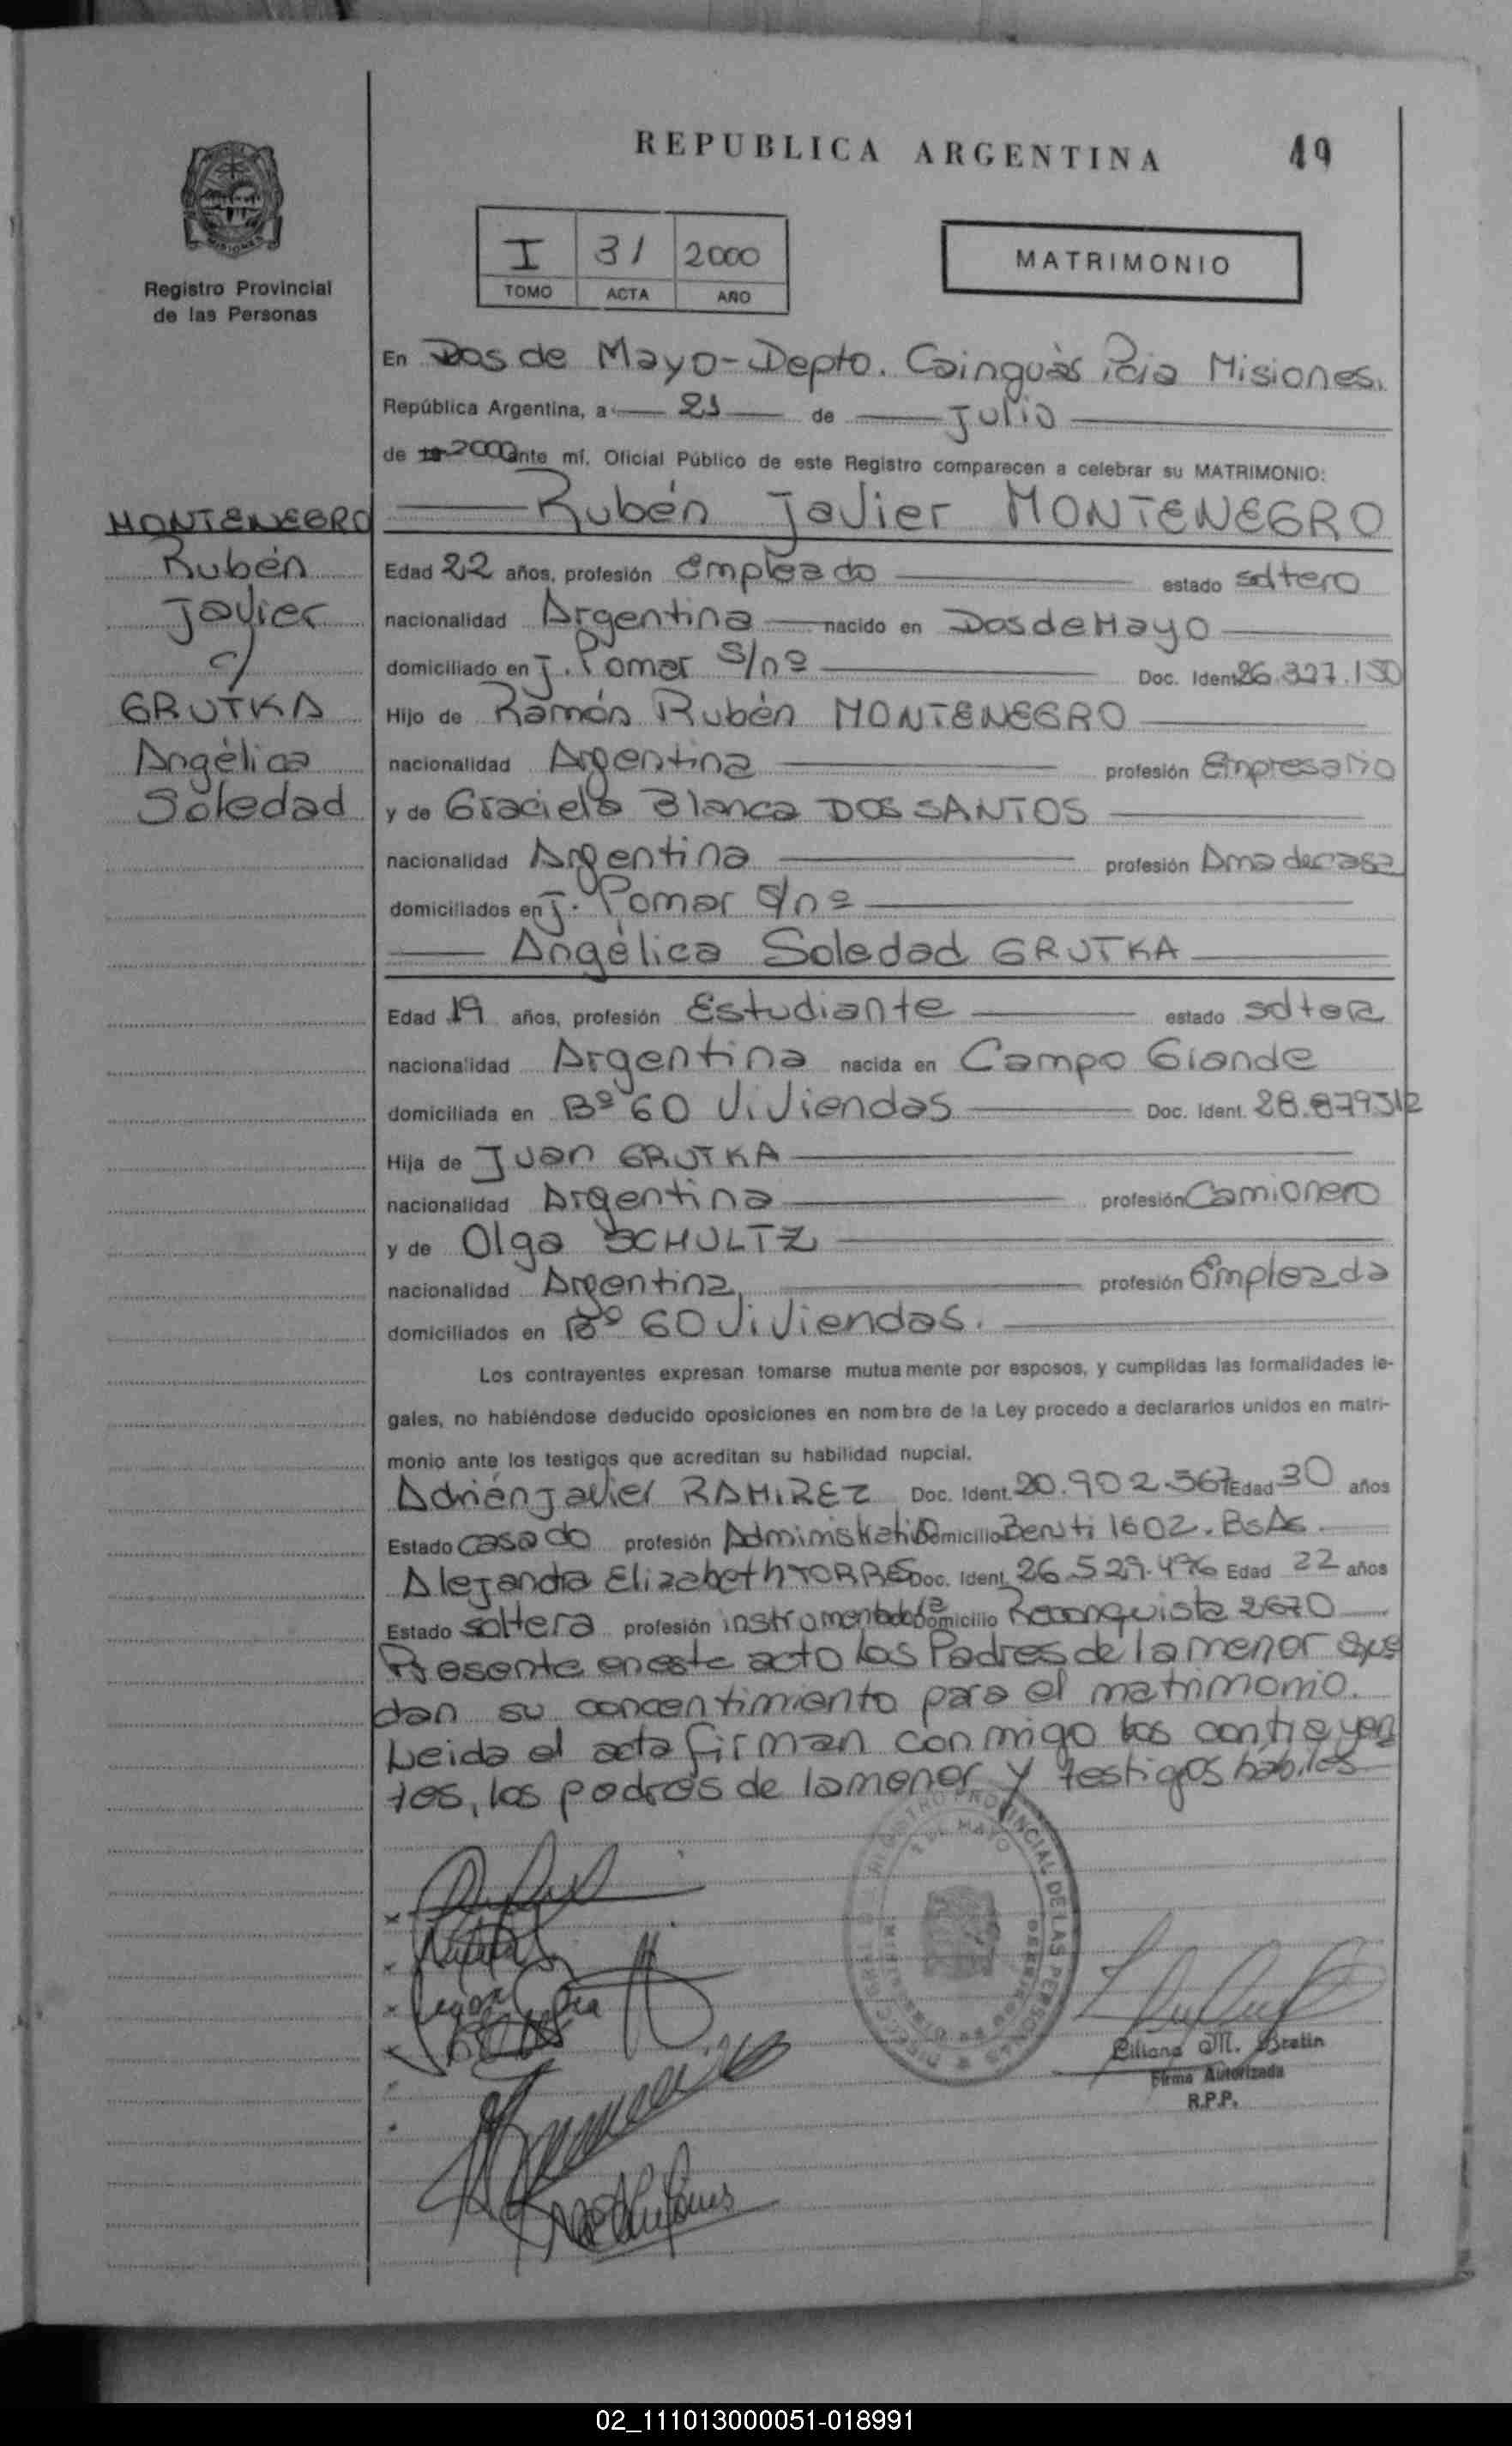 REPUBLICA ARGENTINA
49
MISIONES
Registro Provincial
de las Personas
I 31 2000
TOMO ACTA AÑO
MATRIMONIO
En Dos de Mayo-Depto. Cainguás Pcia Misiones.
República Argentina, a 21 de Julio
de 19 2000 ante mí. Oficial Público de este Registro comparecen a celebrar su MATRIMONIO:
Rubén Javier MONTENEGRO
MONTENEGRO
Rubén
Javier
c/
GRUTKA
Angélica
Soledad
Edad 22 años, profesión empleado estado soltero
nacionalidad Argentina nacido en Dos de Mayo
domiciliado en J. Pomar S/nº Doc. Ident. 26.327.150
Hijo de Ramón Rubén MONTENEGRO
nacionalidad Argentina profesión Empresario
y de Graciela Blanca DOS SANTOS
nacionalidad Argentina profesión Ama de casa
domiciliados en J. Pomar S/nº
Angélica Soledad GRUTKA
Edad 19 años, profesión Estudiante estado soltera
nacionalidad Argentina nacida en Campo Grande
domiciliada en Bº 60 Viviendas Doc. Ident. 28.879312
Hija de Juan GRUTKA
nacionalidad Argentina profesión Camionero
y de Olga SCHULTZ
nacionalidad Argentina profesión Empleada
domiciliados en Bº 60 Viviendas.
Los contrayentes expresan tomarse mutuamente por esposos, y cumplidas las formalidades le-
gales, no habiéndose deducido oposiciones en nombre de la Ley procedo a declararlos unidos en matri-
monio ante los testigos que acreditan su habilidad nupcial.
Adrián Javier RAMIREZ Doc. Ident. 20.902.567 Edad 30 años
Estado casado profesión Administrativo Domicilio Beruti 1602. BsAs
Alejandra Elizabeth TORRES Doc. Ident. 26.529.496 Edad 22 años
Estado soltera profesión instrumentadora Domicilio Reconquista 2670
Presente en este acto los Padres de la menor que
dan su concentimiento para el matrimonio.
Leida el acta firman conmigo los contrayen
tes, los padres de la menor y testigos hábiles
REGISTRO PROVINCIAL DE LAS PERSONAS
2 DE MAYO
Liliana M. Bratin
Firma Autorizada
R.P.P.
02_111013000051-018991